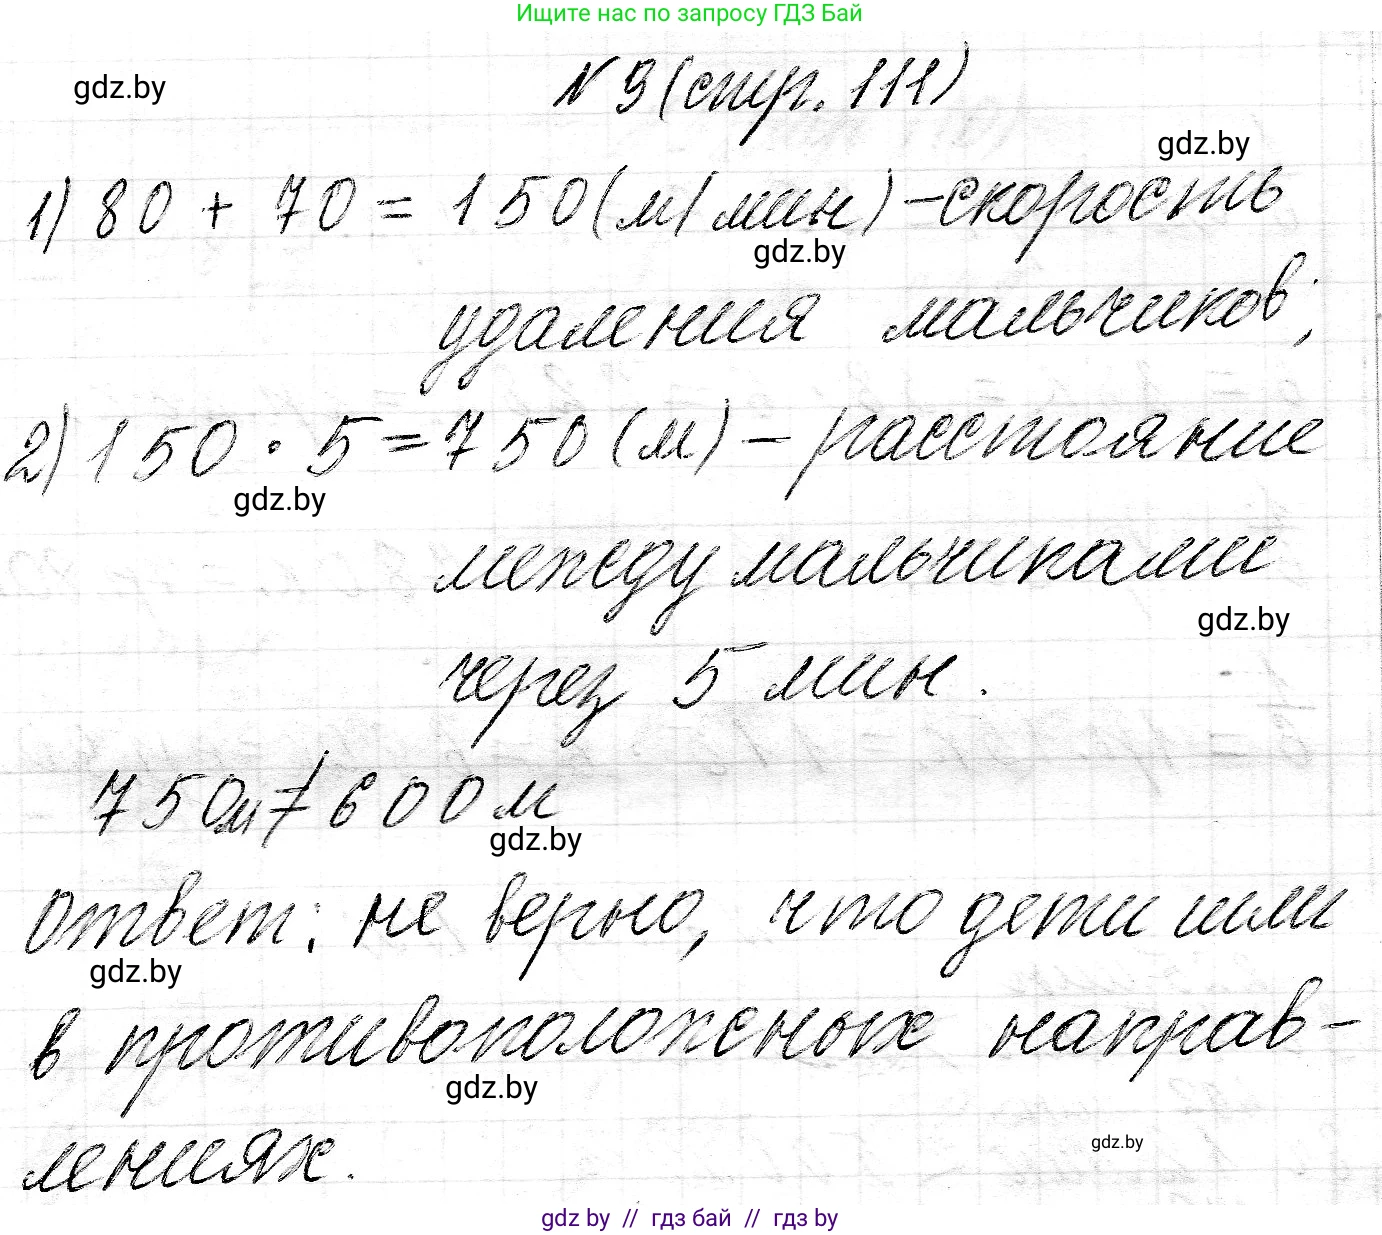 Ищите нас по запросу ГДЗ Бай
№ 9 (стр. 111)
gdz.by
gdz.by
1) 80 + 70 = 150 (м/мин) - скорость
gdz.by
удаления мальчиков;
2) 150 · 5 = 750 (м) - расстояние
gdz.by
между мальчиками
gdz.by
через 5 мин.
750м ≠ 600м
gdz.by
Ответ: не верно, что дети шли
gdz.by
в противоположных направ-
gdz.by
лениях.
gdz.by
gdz by // гдз бай // гдз by